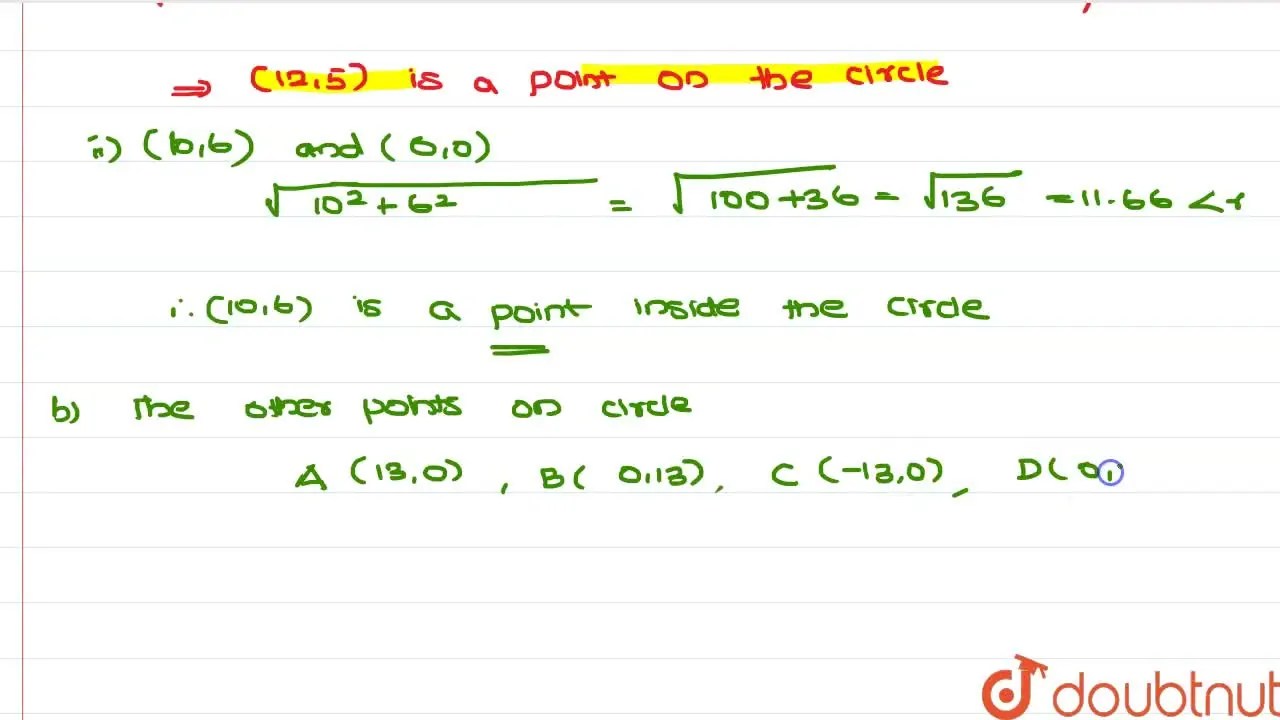 ⇒ (12,5) is a point on the circle
ii) (10,6) and (0,0)
√10² + 6² = √100+36 = √136 = 11.66 < r
∴ (10,6) is a point inside the circle
b) The other points on circle
A (13,0) , B( 0,13), C (-13,0), D( 0,
doubtnut